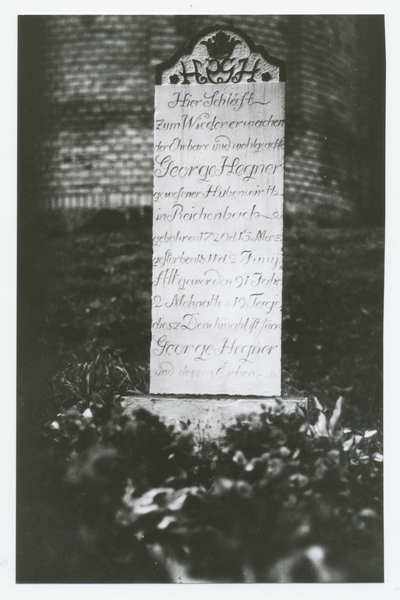 HPGH
Hier Schläft
zum Wiedererwachen
der Ehrbare und wohlgeachte
George Hegner
gewesener Hubenwirth
in Reichenbach
gebohren 1720 d 15 Merz
gestorben 1811 d 2 Juny
Alt geworden 91 Jahr
2 Mohnath 19 Tage
dies Denckmahl ist für
George Hegner
und dessen Erben